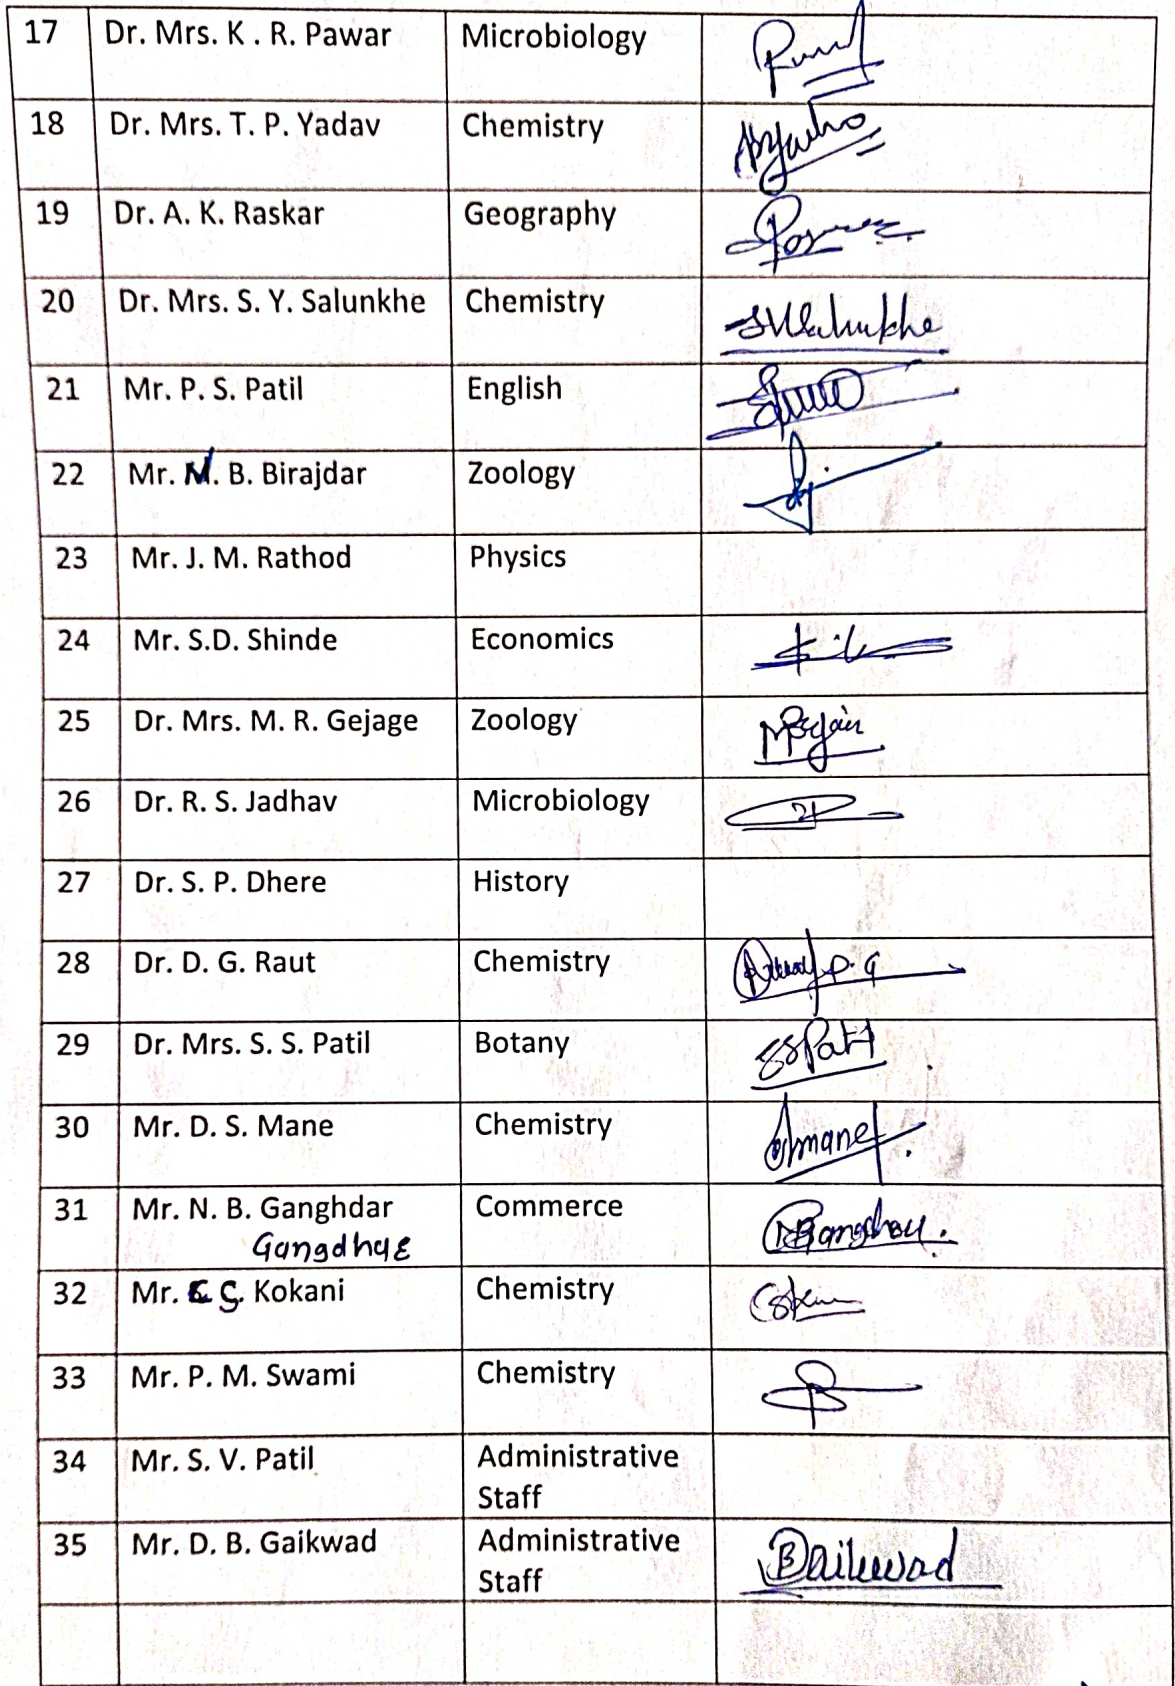 17 Dr. Mrs. K . R. Pawar Microbiology
18 Dr. Mrs. T. P. Yadav Chemistry
19 Dr. A. K. Raskar Geography
20 Dr. Mrs. S. Y. Salunkhe Chemistry SYSalunkhe
21 Mr. P. S. Patil English
22 Mr. M. B. Birajdar Zoology
23 Mr. J. M. Rathod Physics
24 Mr. S.D. Shinde Economics
25 Dr. Mrs. M. R. Gejage Zoology
26 Dr. R. S. Jadhav Microbiology
27 Dr. S. P. Dhere History
28 Dr. D. G. Raut Chemistry D. G
29 Dr. Mrs. S. S. Patil Botany SSPatil
30 Mr. D. S. Mane Chemistry
31 Mr. N. B. Ganghdar Commerce
Gangdhar
32 Mr. S. Kokani Chemistry
33 Mr. P. M. Swami Chemistry
34 Mr. S. V. Patil Administrative
Staff
35 Mr. D. B. Gaikwad Administrative
Staff